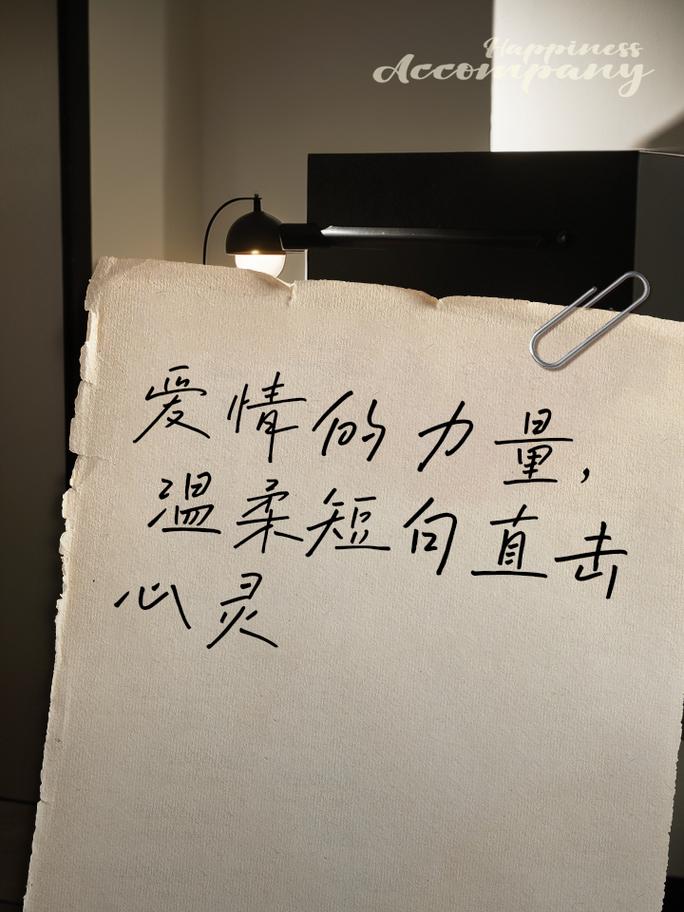 Happiness
Accompany
爱情的力量,
温柔短句直击
心灵